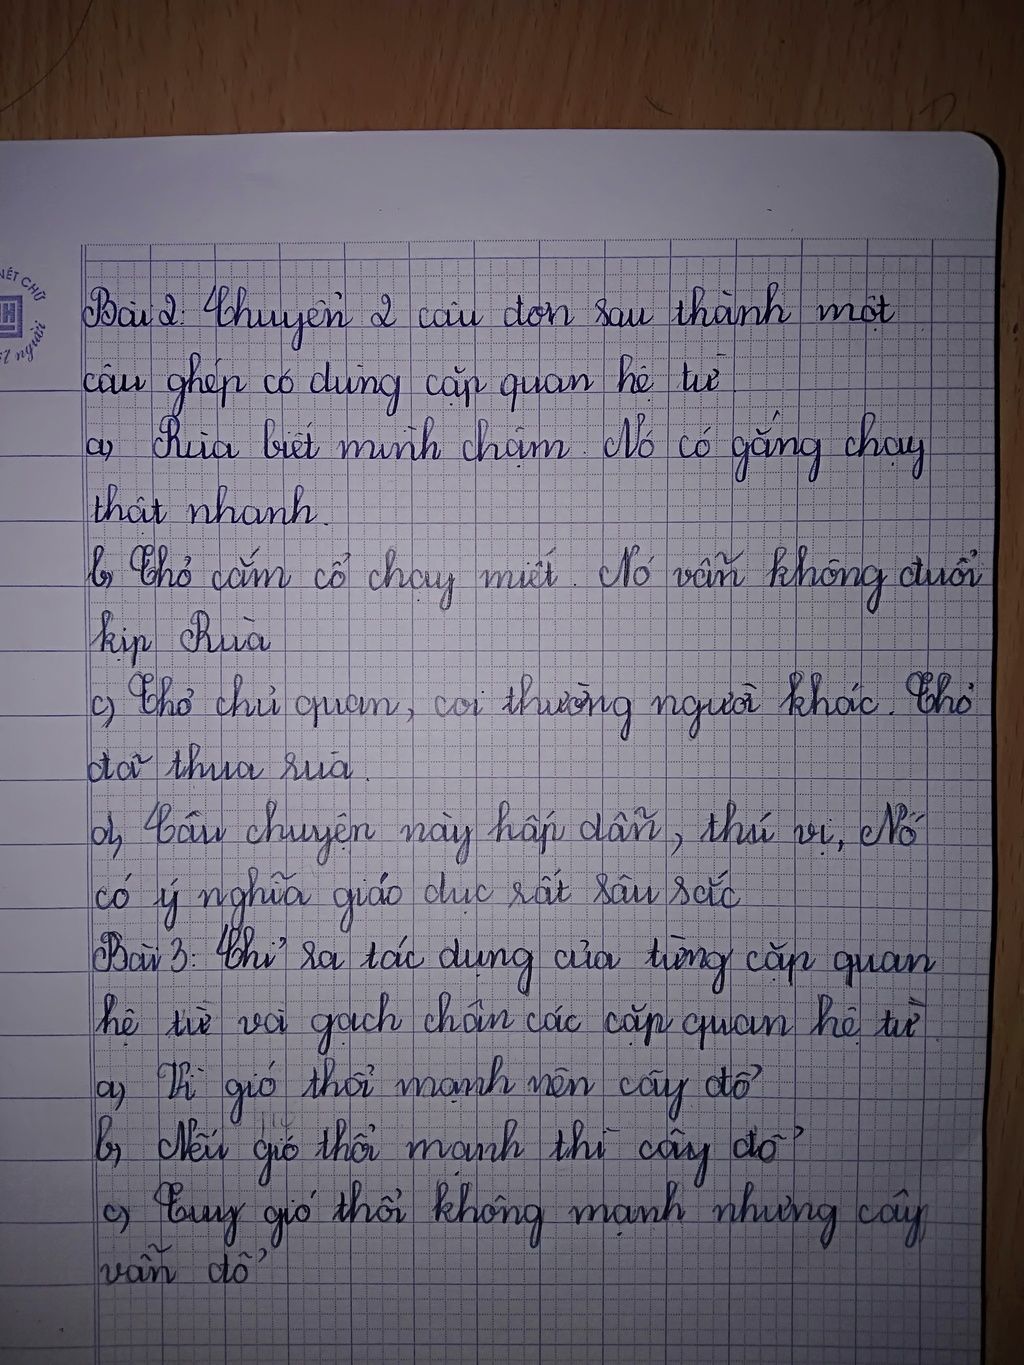 NÉT CHỮ
H
nết người
Bài 2: Chuyển 2 câu đơn sau thành một
câu ghép có dùng cặp quan hệ từ
a) Rùa biết mình chậm. Nó cố gắng chạy
thật nhanh.
b) Thỏ cắm cổ chạy miết. Nó vẫn không đuổi
kịp Rùa
c) Thỏ chủ quan, coi thường người khác. Thỏ
đã thua rùa.
d) Câu chuyện này hấp dẫn, thú vị, Nó
có ý nghĩa giáo dục rất sâu sắc
Bài 3: Chỉ ra tác dụng của từng cặp quan
hệ từ và gạch chân các cặp quan hệ từ
a) Vì gió thổi mạnh nên cây đổ
b) Nếu gió thổi mạnh thì cây đổ
c) Tuy gió thổi không mạnh nhưng cây
vẫn đổ